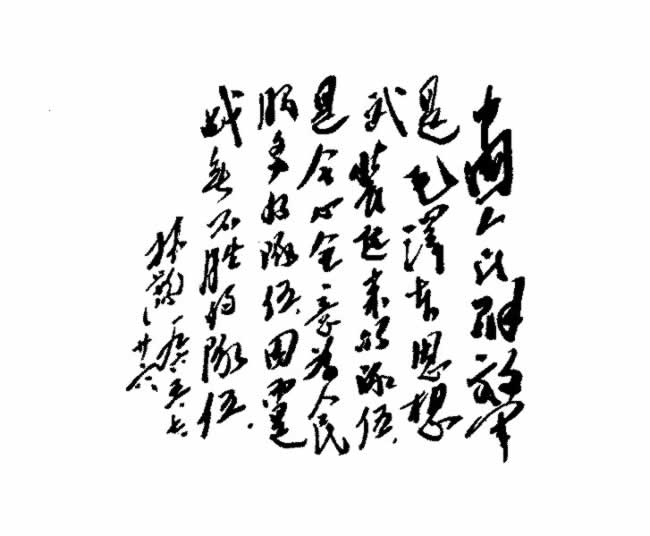 中国人民解放军
是毛泽东思想
武装起来的队伍,
是全心全意为人民
服务的队伍,因而是
战无不胜的队伍.
林彪
一九六五.七.廿六